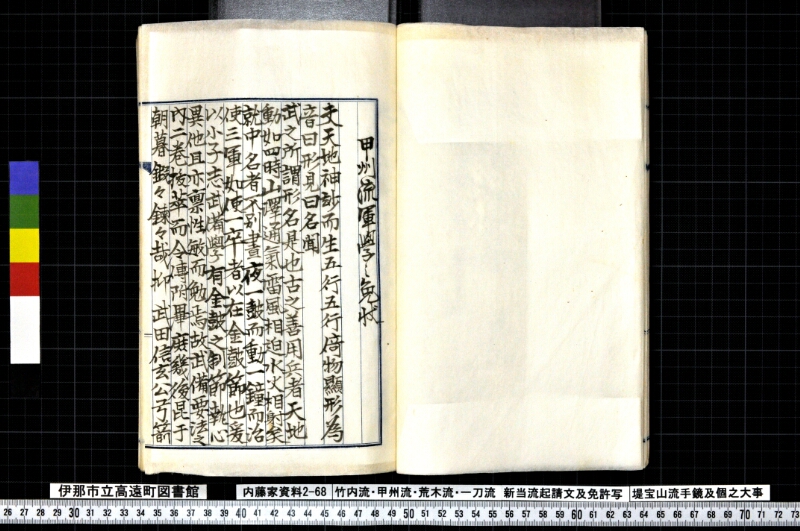 甲州流軍学之免状
夫天地神妙而生五行五行倍物顯形為
音曰形見曰名聞
武之所謂形名是也古之善用兵者天地
動如四時山澤通氣雷風相迫水火相射矣
就中名者不別晝夜一鼓而動一鐘而治
使三軍如使一卒者以在金鼓節也爰
以小子志武備学有金鼓之制節執心
異他且亦禀性敏而勉焉故武備要法之
内二巻抜萃而令傳附畢庶幾後昆于
朝暮鍛々錬々哉抑 武田信玄公弓箭
伊那市立高遠町図書館
内藤家資料2-68
竹内流・甲州流・荒木流・一刀流 新当流起請文及免許写
堤宝山流手鏡及個之大事
26 27 28 29 30 31 32 33 34 35 36 37 38 39 40 41 42 43 44 45 46 47 48 49 50 51 52 53 54 55 56 57 58 59 60 61 62 63 64 65 66 67 68 69 70 71 72 73